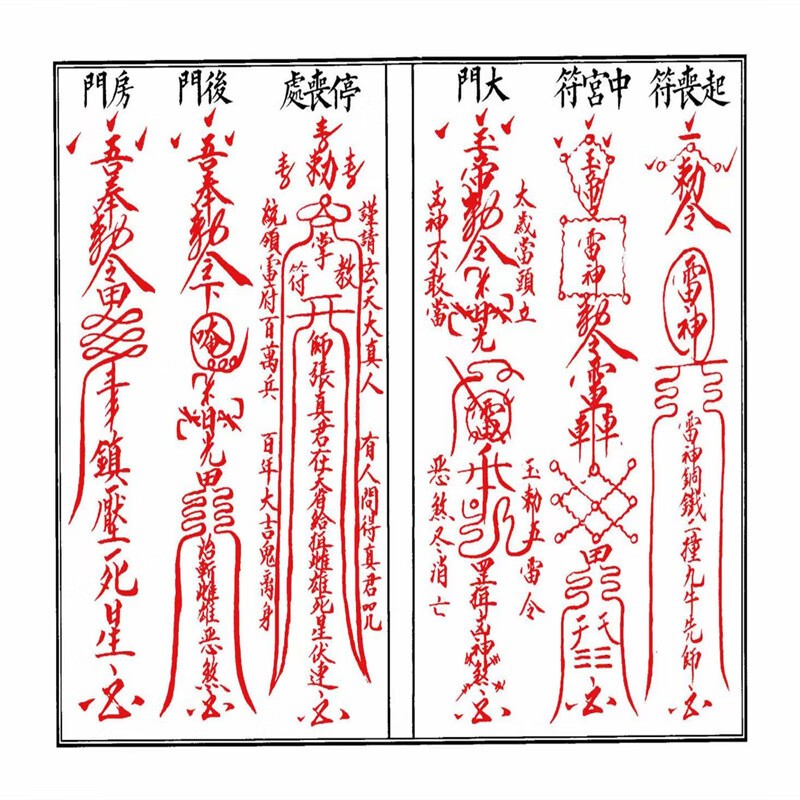 起喪符
一
勅令
雷神
雷神銅鐵二撞九牛先師
中宮符
玉帝
雷神
勅令
田
大門
玉帝勅令
太歲當頭立
凶神不敢當
雷
罡
凶神煞
玉勅五雷令
惡煞尽消亡
停喪處
勅
教
学
符
師張真君在天省給
雌雄死星伏連
謹請玄天大真人
統領雷府百萬兵
有人問得真君咒
百年大吉鬼离身
後門
吾奉勅令下
唵
田
治斬雌雄惡煞
房門
吾奉勅令田
鎮壓死星